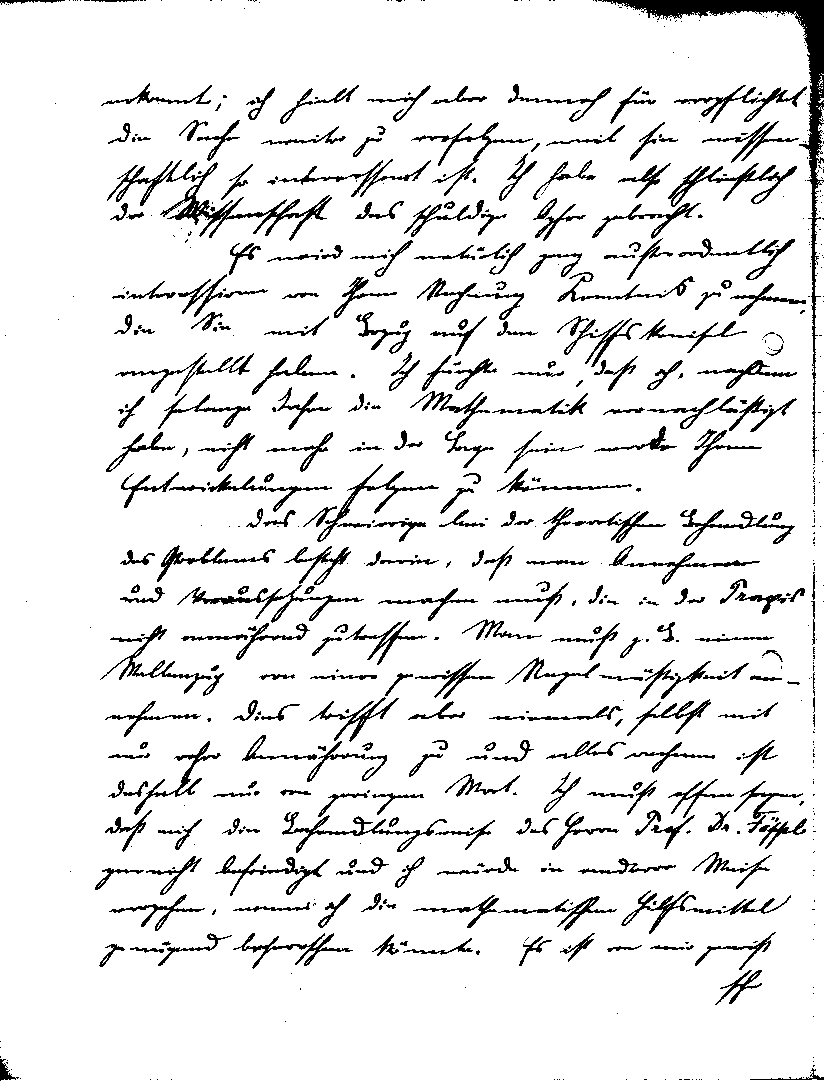 erkannt; ich hielt mich aber dennoch für verpflichtet
die Sache weiter zu verfolgen, weil sie wissen-
schaftlich so interessant ist. Ich habe also schließlich
der Wissenschaft das schuldige Opfer gebracht.
Es wird mich natürlich ganz außerordentlich
interessieren von Ihrer Rechnung Kenntnis zu nehmen,
die Sie mit Bezug auf den Schiffskreisel
angestellt haben. Ich fürchte nur, daß ich, nachdem
ich solange Jahre die Mathematik vernachlässigt
habe, nicht mehr in der Lage sein werde Ihren
Entwickelungen folgen zu können.
Das Schwierige bei der theoretischen Behandlung
des Problems besteht darin, daß man Annahmen
und Voraussetzungen machen muß, die in der Praxis
nicht annährend zutreffen. Man muß z. B. einen
Wellenzug von einer gewissen Regelmäßigkeit an-
nehmen. Dies trifft aber niemals, selbst mit
nur roher Annährung zu und alles rechnen ist
deshalb nur von geringem Wert. Ich muß offen sagen,
daß mich die Behandlungsweise des Herrn Prof. Dr. Föppl
gar nicht befriedigt und ich würde in anderer Weise
vorgehen, wenn ich die mathematischen Hilfsmittel
genügend beherrschen könnte. Es ist von mir gewiß